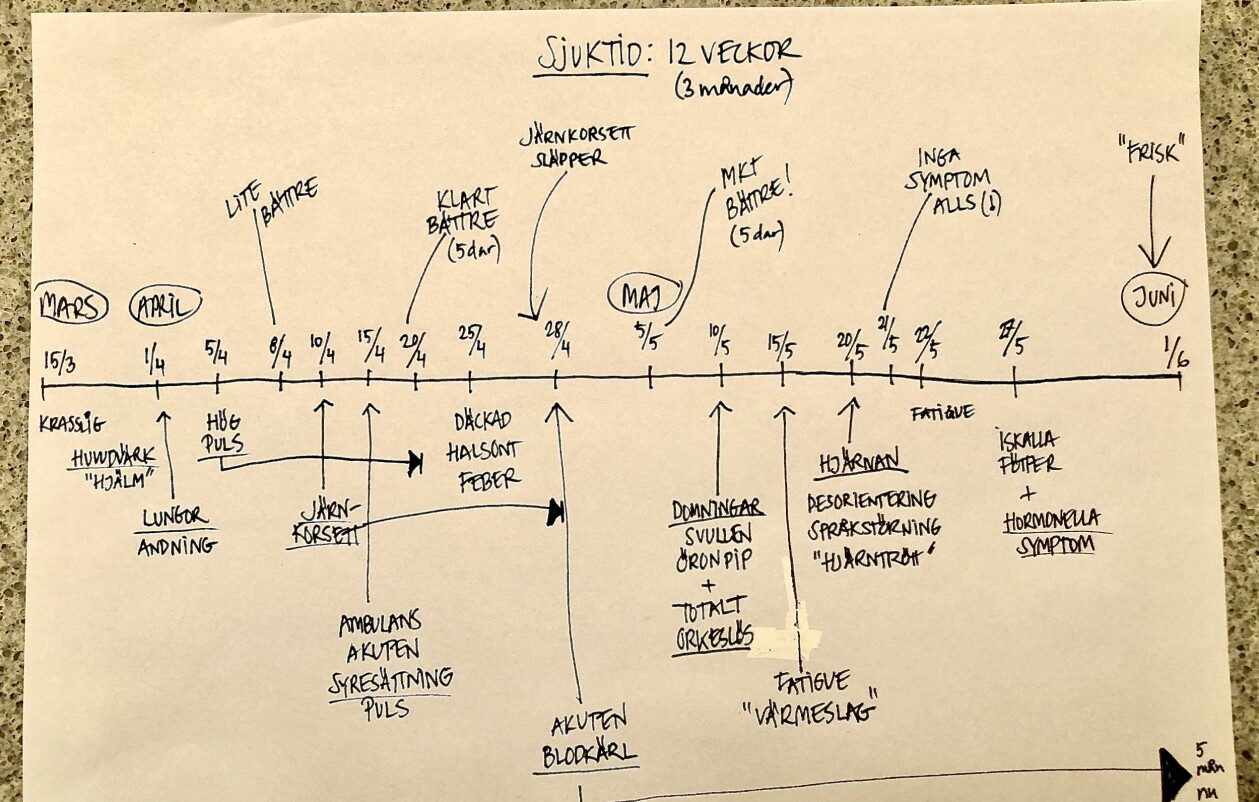 SJUKTID: 12 VECKOR
(3 månader)
JÄRNKORSETT
SLÄPPER
"FRISK"
INGA
SYMPTOM
ALLS (!)
MKT
BÄTTRE!
(5 dar)
LITE
BÄTTRE
KLART
BÄTTRE
(5 dar)
MARS
APRIL
MAJ
JUNI
15/3
1/4
5/4
8/4
10/4
15/4
20/4
25/4
28/4
5/5
10/5
15/5
20/5
21/5
22/5
27/5
1/6
KRASSLIG
HUVUDVÄRK
"HJÄLM"
LUNGOR
ANDNING
HÖG
PULS
JÄRN-
KORSETT
AMBULANS
AKUTEN
SYRESÄTTNING
PULS
DÄCKAD
HALSONT
FEBER
AKUTEN
BLODKÄRL
DOMNINGAR
SVULLEN
ÖRONPIP
+
TOTALT
ORKESLÖS
FATIGUE
"VÄRMESLAG"
HJÄRNAN
DESORIENTERING
SPRÅKSTÖRNING
"HJÄRNTRÖTT"
FATIGUE
ISKALLA
FÖTTER
+
HORMONELLA
SYMPTOM
5
mån
nu